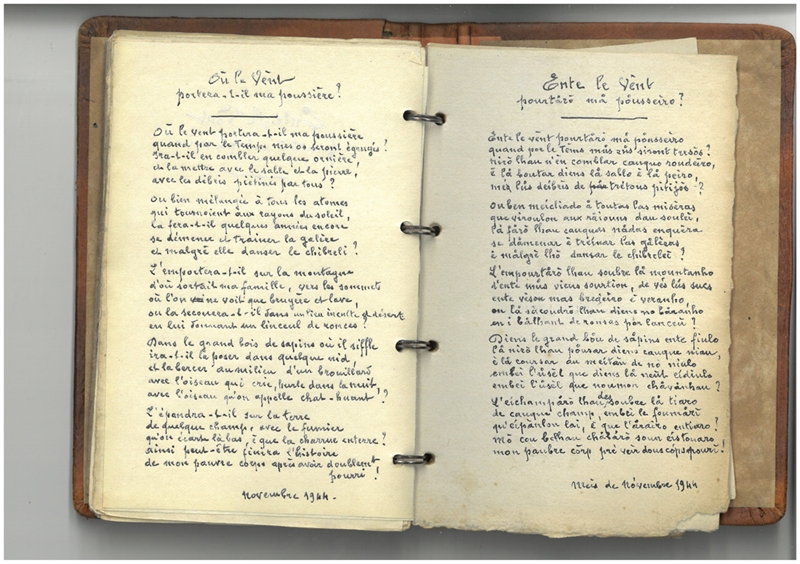 Où le Vent
portera-t-il ma poussière?
Où le vent portera-t-il ma poussière
quand par le Temps mes os seront égrugés?
Ira-t-il en combler quelque ornière,
et la mettre avec le sable et la pierre,
avec les débris piétinés par tous?
Ou bien mélangée à tous les atomes
qui tournoient aux rayons du soleil,
la fera-t-il quelques années encore
se démener et traîner la galère
et malgré elle danser le chibreli?
L'emportera-t-il sur la montagne
d'où sortait ma famille, vers les sommets
où l'on ne voit que bruyère et lave,
ou la secouera-t-il dans un inculte et désert
en lui donnant un linceul de ronces?
Dans le grand bois de sapins où il siffle
ira-t-il la poser dans quelque nid,
et la bercer au milieu d'un brouillard
avec l'oiseau qui crie, hurle dans la nuit,
avec l'oiseau qu'on appelle chat-huant?
L'épandra-t-il sur la terre
de quelque champ, avec le fumier
qu'on écarte là bas, et que la charrue enterre?
ainsi peut-être finira l'histoire
de mon pauvre corps après avoir doublement
pourri!
Novembre 1944.
Ente le Vènt
pourtârô mâ pôusseiro?
Ente le vènt pourtârô mâ pôusseiro
quand por le Tèms mûs zûs siront tresôs?
nirô lhau n'en comblar cauquo roudeiro,
ê lâ boutar diens lâ sablo ê lâ peiro,
mès lûs débris de trétous pitijôs?
Ou ben meicliado ê toutas las misèras
que viroulon aux râiouns dau soulei,
lâ fârô lhau cauquas nâdas enquêra
se dâmenar ê treinar las gâlèras
ê mâlgrê lhô dansar le chibrelei?
L'empourtârô lhau soubre lâ mountanho
s'ente mûs viens sourtion, de vès lûs sucs
ente vèson mas bregeiro ê veranho,
ou lâ sècoudrô lhau diens no bâranho
en i bâlhant de ronsas por lanceu?
Diens le grand bôu de sâpins ente fiulo
lâ nirô lhau pôusar diens cauque niau,
ê lâ coursar au meitan de nô niulo
embei l'ûsèl que diens lâ neut
embei l'ûsèl que noumon châvânhau?
L'eichampârô lhau dessoubre lâ tiaro
de cauque champ, embei le foumârî
qu'eipanlon lai, ê que l'ârâiro entiaro?
mon paubre côrp pré veir dous côps pourî!
Meis de Novembre 1944